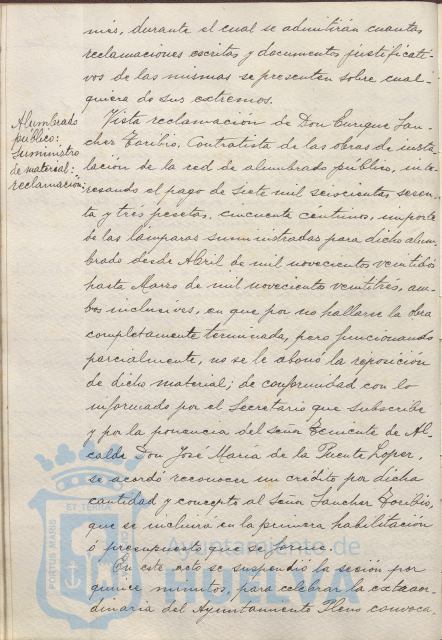 mes, durante el cual se admitirán cuantas
reclamaciones escritas y documentos justificati-
vos de las mismas se presenten sobre cual-
quiera de sus extremos.
Alumbrado
público:
suministro
de material:
reclamacion.
Vista reclamación de Don Enrique San-
chez Toribio, Contratista de las obras de insta-
lación de la red de alumbrado público, inte-
resando el pago de siete mil seiscientas seten-
ta y tres pesetas, cincuenta centimos, importe
de las lámparas suministradas para dicho alum-
brado desde Abril de mil novecientos veintidós
hasta Marzo de mil novecientos veintitres, am-
bos inclusives, en que por no hallarse la obra
completamente terminada, pero funcionando
parcialmente, no se le abonó la reposición
de dicho material; de conformidad con lo
informado por el Secretario que subscribe
y por la ponencia del señor Teniente de Al-
calde Don José María de la Puente Lopez,
se acordó reconocer un crédito por dicha
cantidad y concepto al Señor Sanchez Toribio,
que se incluirá en la primera habilitación
ó presupuesto que se forme.
En este acto se suspendió la sesión por
quince minutos, para celebrar la extraor-
dinaria del Ayuntamiento Pleno convoca-
PORTUS MARIS ET TERRAE CUSTODIO
Ayuntamiento de
HUELVA